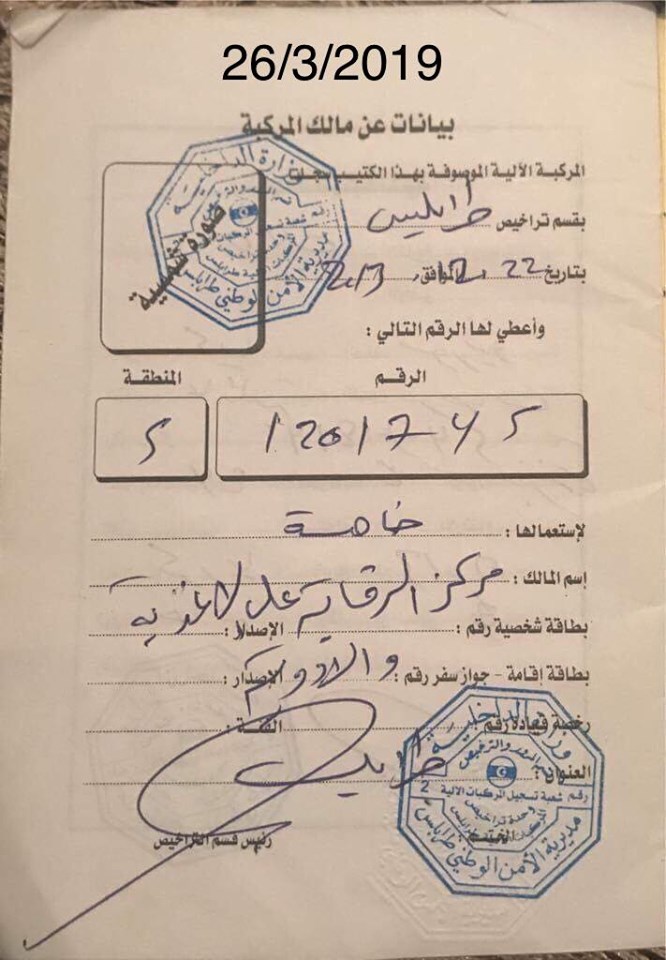 26/3/2019
بيانات عن مالك المركبة
المركبة الآلية الموصوفة بهذا الكتيب سجلت
بقسم تراخيص طرابلس
بتاريخ 22 . 12 الموافق . 2013
صورة شمسية
وأعطي لها الرقم التالي :
الرقم المنطقة
1201745 5
لإستعمالها : خاصة
إسم المالك : مركز الرقابة على لاغذية
بطاقة شخصية رقم : الإصدار :
والادوية
بطاقة إقامة - جواز سفر رقم : الإصدار :
رخصة قيادة رقم : الفئة :
العنوان : طرابلس
الختم
رئيس قسم التراخيص
وزارة الداخلية
مديرية الأمن الوطني طرابلس
رقم شعبة تسجيل المركبات الالية 2
وحدة تراخيص